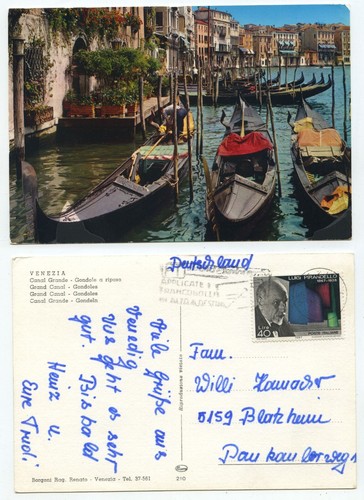 VENEZIA
Canal Grande - Gondole a riposo
Grand Canal - Gondoles
Grand Canal - Gondoles
Canal Grande - Gondeln
Deutschland
APPLICATE I
FRANCOBOLLI
LUIGI PIRANDELLO
1867-1936
Lire 40
POSTE ITALIANE
Viele Grüße aus
Venedig
uns geht es sehr
gut. Bis bald
Heinz u.
Eure Trudi
Fam.
Willi
5159 Blatzheim
Riproduzione vietata
Bongoni Rag. Renato - Venezia - Tel. 57-551
210